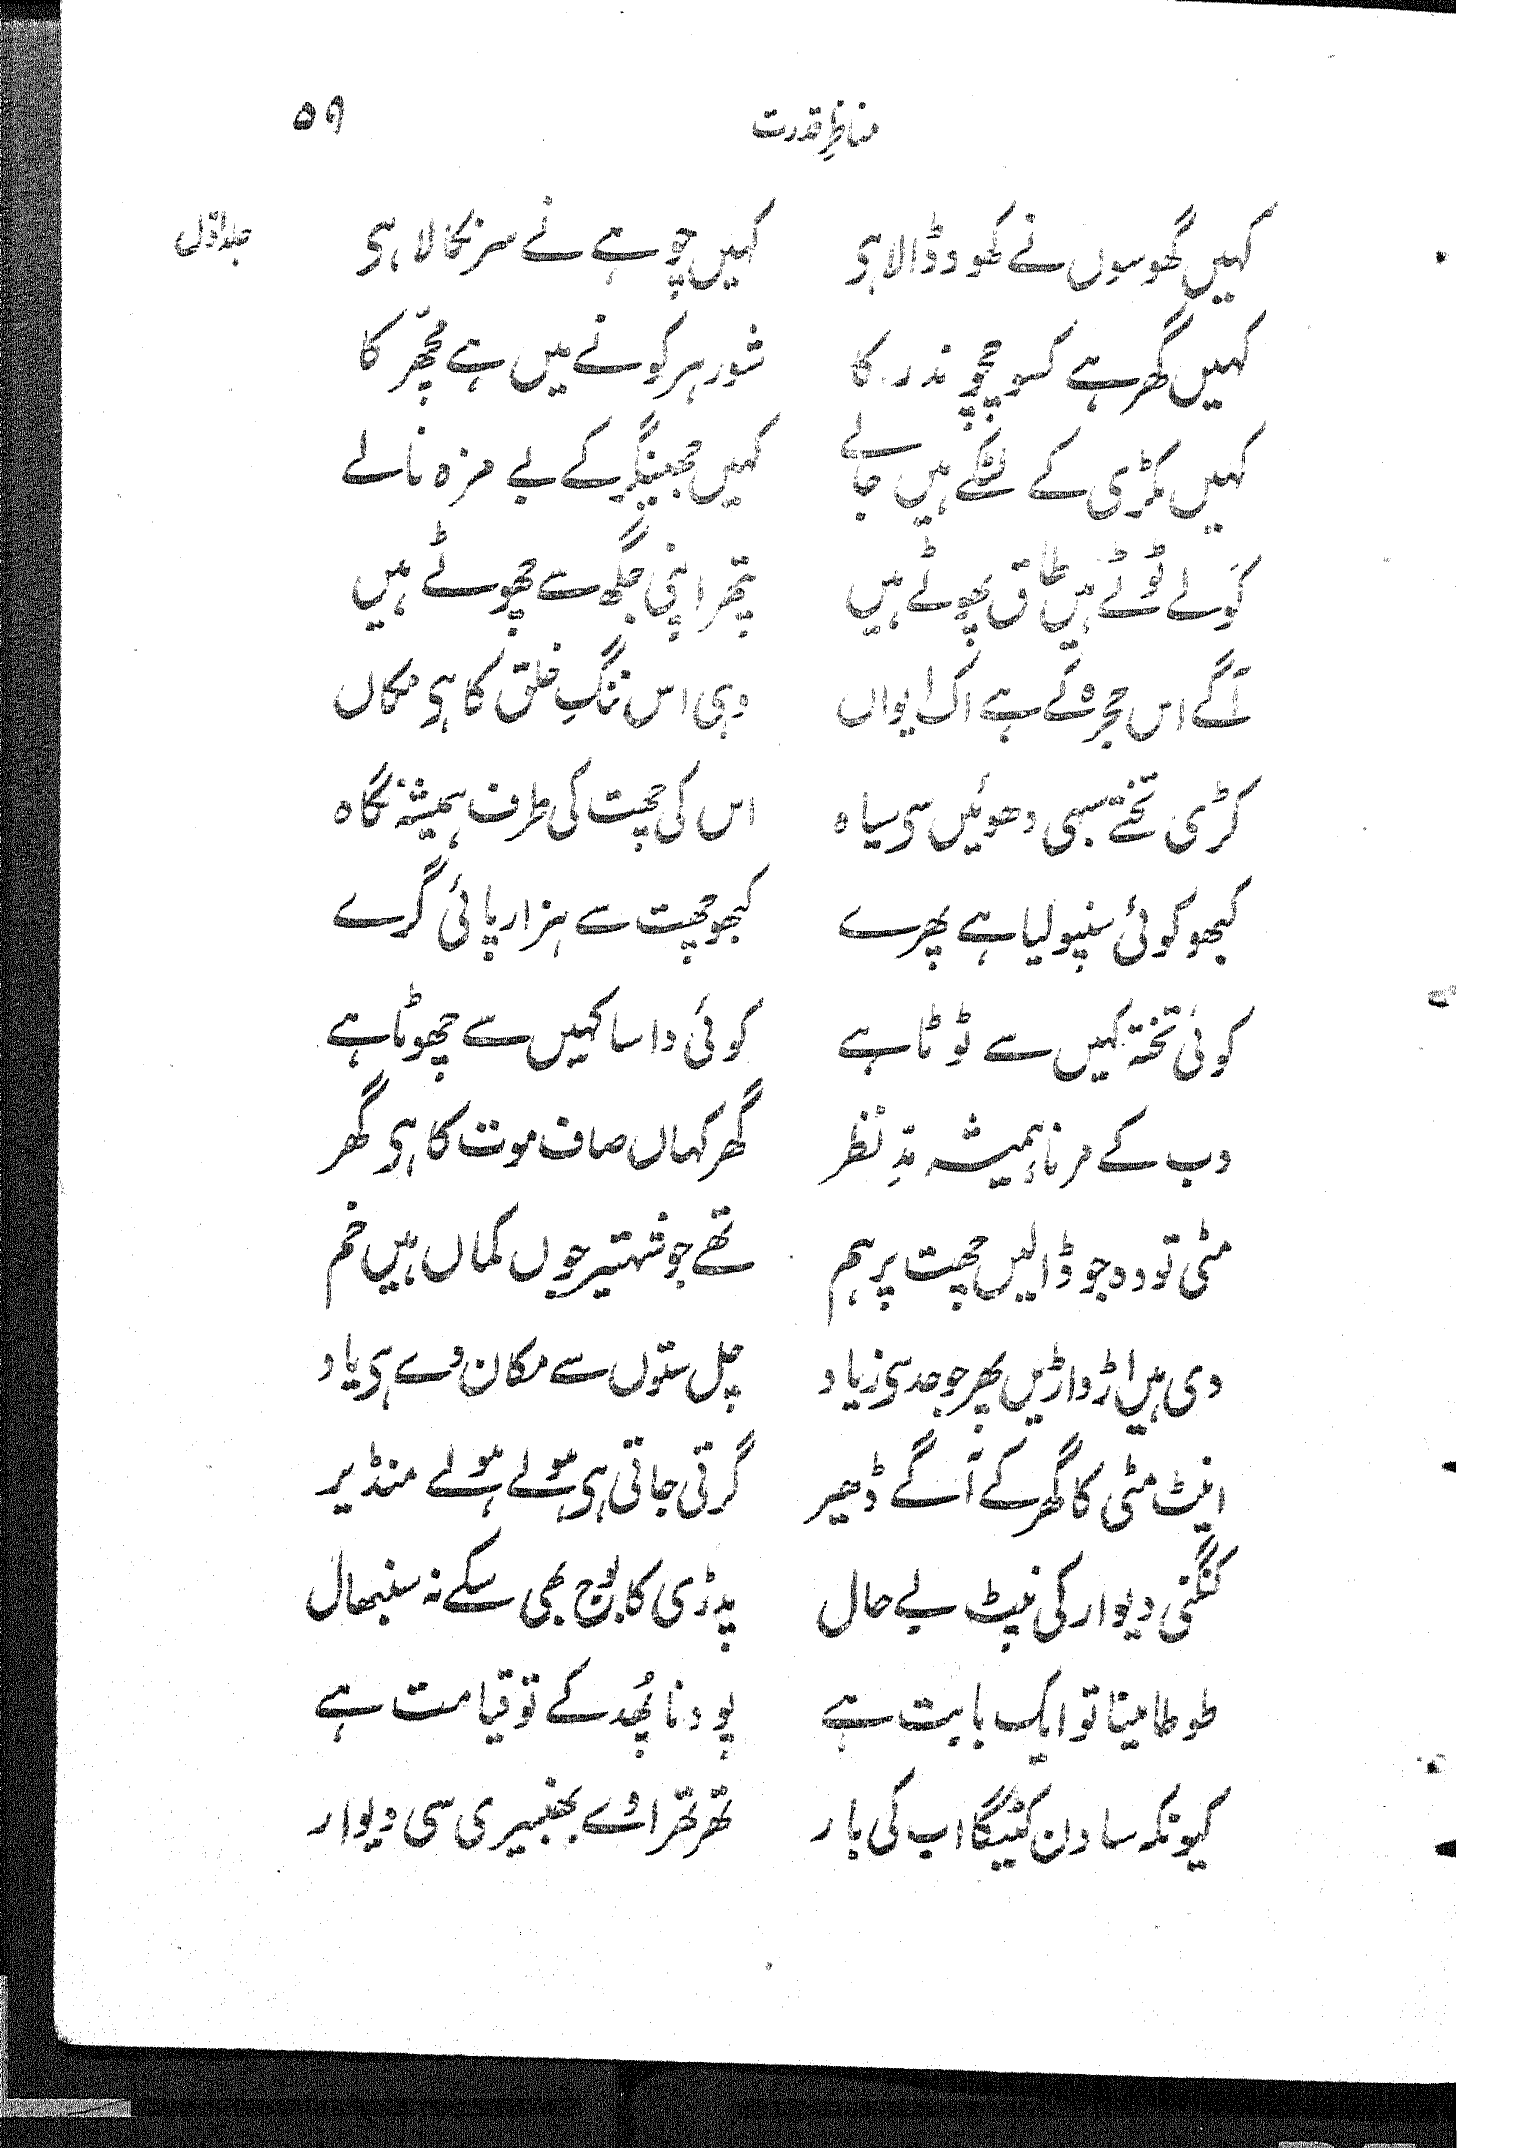 مناظرِ قدرت ۵۹
جلد اوّل
کہیں گھوسوں نے کھود ڈالا ہی کہیں چوہے نے سر نکالا ہی
کہیں گھر ہے کسو چھچوندر کا شور ہر کونے میں ہے مچھّر کا
کہیں مکڑی کے لٹکے ہیں جالے کہیں جھینگر کے بے مزہ نالے
کونے ٹوٹے ہیں طاق پھوٹے ہیں پتھر اپنی جگہ سے چھوٹے ہیں
آگے اس حجرہ کے ہے اک ایواں وہی اس ننگِ خلق کا ہی مکاں
کڑی تختے سبھی دھوئیں سی سیاہ اس کی چھت کی طرف ہمیشہ نگاہ
کبھو کوئی سنپولیا ہے پھرے کبھو چھت سے ہزار پائی گرے
کوئی تختہ کہیں سے ٹوٹا ہے کوئی داسا کہیں سے چھوٹا ہے
دب کے مرنا ہمیشہ مدِّ نظر گھر کہاں صاف موت کا ہی گھر
مٹی تودہ جو ڈالیں چھت پر ہم تھے جو شہتیر جوں کماں ہیں خم
دی ہیں اڑواڑیں پھر جو حد سی زیاد چل ستوں سے مکان دے ہی یاد
اینٹ مٹی کا گھر کے آگے ڈھیر گرتی جاتی ہی ہولے ہولے منڈیر
کنگنی دیوار کی نپٹ بے حال پدڑی کا بوج بھی سکے نہ سنبھال
طوطا مینا تو ایک بابت ہے پودنا پُھدکے تو قیامت ہے
کیونکہ ساون کٹیگا اب کی بار تھر تھراوے بھنبھیری سی دیوار